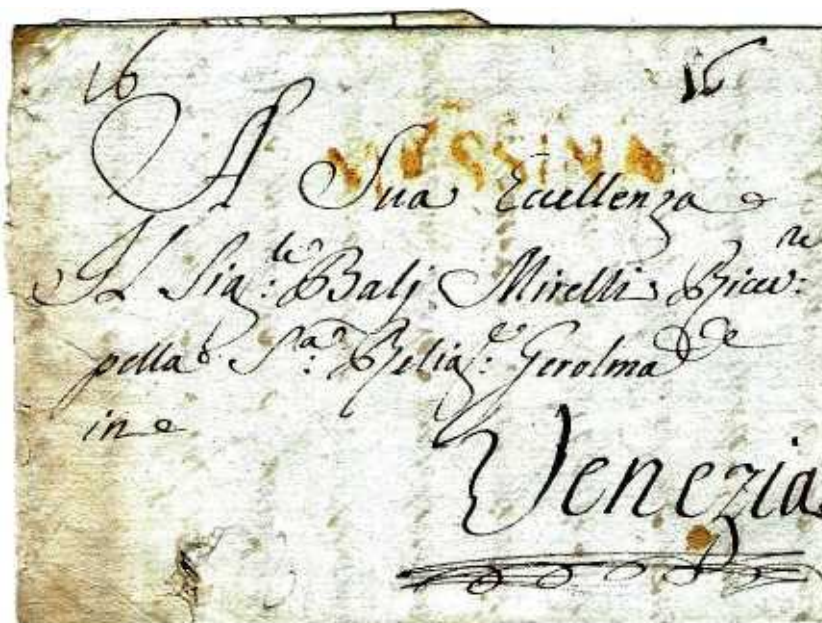 16 16
MESSINA
A Sua Eccellenza
Il Sig:re Balj Mirelli Ricev:re
pella S:a Relig:e Gerolma
in
Venezia